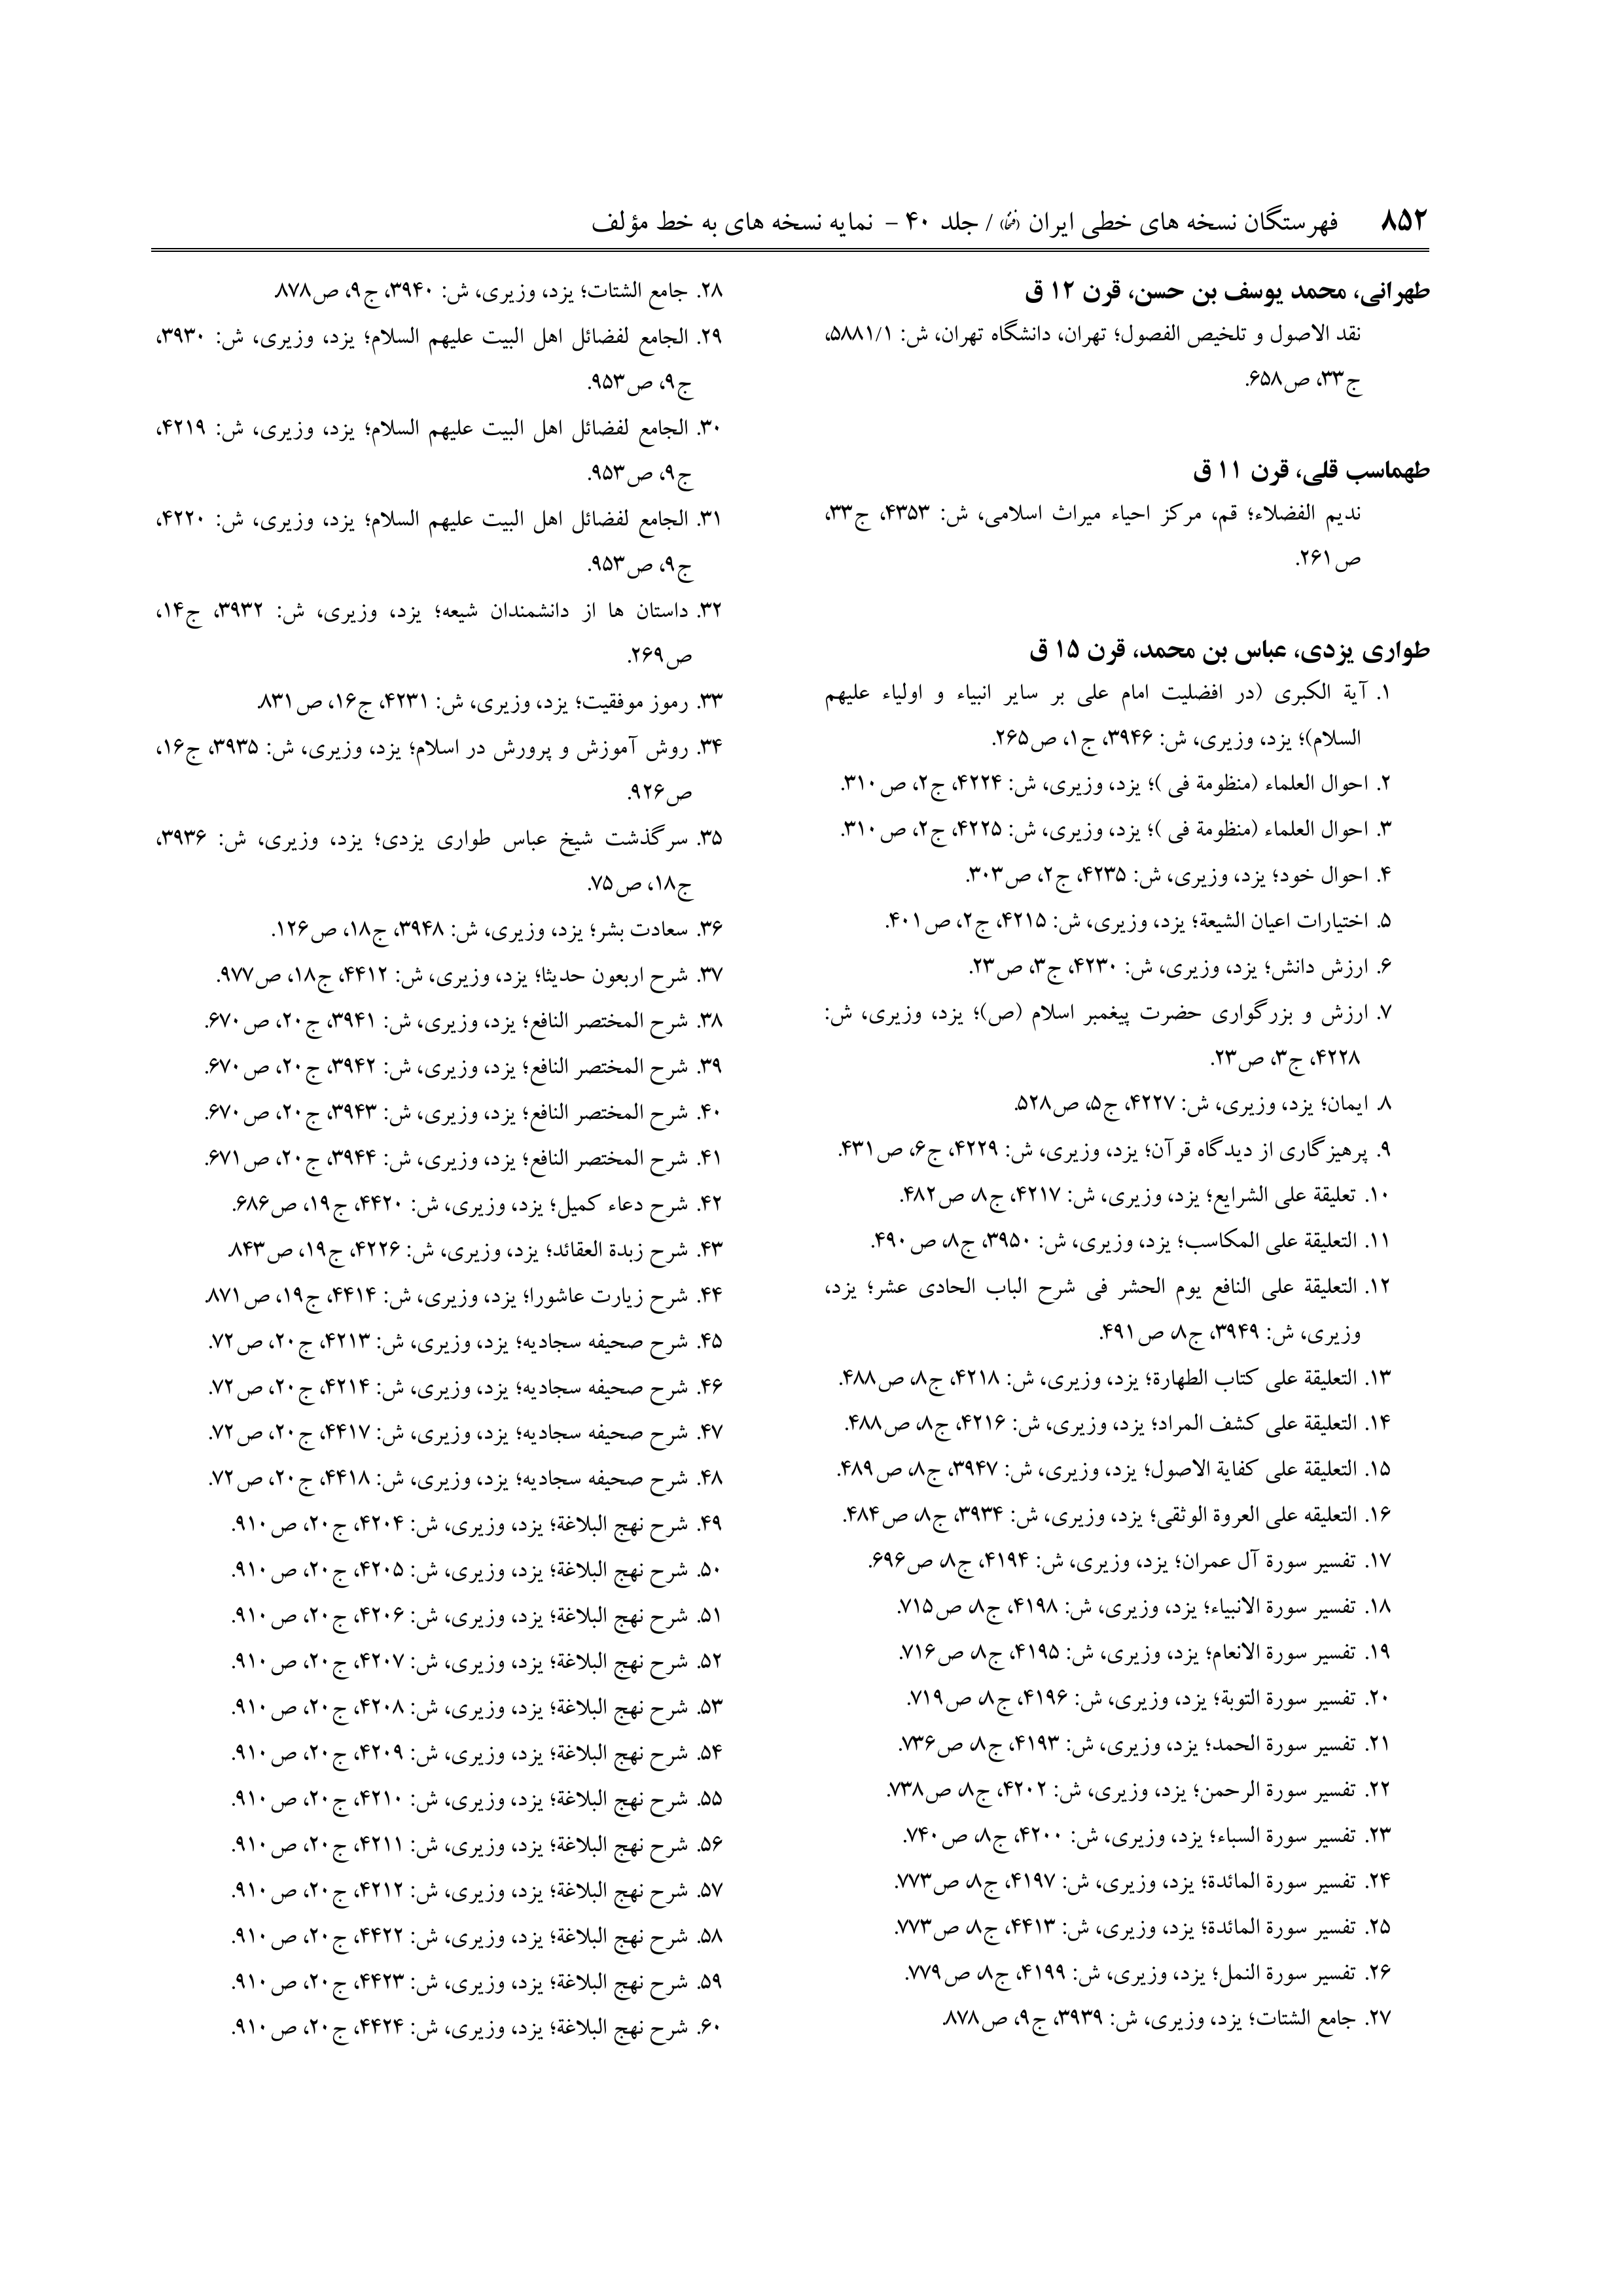 ۸۵۲ فهرستگان نسخه های خطی ایران (فنخا) / جلد ۴۰ - نمایه نسخه های به خط مؤلف
طهرانی، محمد یوسف بن حسن، قرن ۱۲ ق
نقد الاصول و تلخیص الفصول؛ تهران، دانشگاه تهران، ش: ۵۸۸۱/۱،
ج۳۳، ص۶۵۸.
طهماسب قلی، قرن ۱۱ ق
ندیم الفضلاء؛ قم، مرکز احیاء میراث اسلامی، ش: ۴۳۵۳، ج۳۳،
ص۲۶۱.
طواری یزدی، عباس بن محمد، قرن ۱۵ ق
۱. آیة الکبری (در افضلیت امام علی بر سایر انبیاء و اولیاء علیهم
السلام)؛ یزد، وزیری، ش: ۳۹۴۶، ج۱، ص۲۶۵.
۲. احوال العلماء (منظومة فی )؛ یزد، وزیری، ش: ۴۲۲۴، ج۲، ص۳۱۰.
۳. احوال العلماء (منظومة فی )؛ یزد، وزیری، ش: ۴۲۲۵، ج۲، ص۳۱۰.
۴. احوال خود؛ یزد، وزیری، ش: ۴۲۳۵، ج۲، ص۳۰۳.
۵. اختیارات اعیان الشیعة؛ یزد، وزیری، ش: ۴۲۱۵، ج۲، ص۴۰۱.
۶. ارزش دانش؛ یزد، وزیری، ش: ۴۲۳۰، ج۳، ص۲۳.
۷. ارزش و بزرگواری حضرت پیغمبر اسلام (ص)؛ یزد، وزیری، ش:
۴۲۲۸، ج۳، ص۲۳.
۸. ایمان؛ یزد، وزیری، ش: ۴۲۲۷، ج۵، ص۵۲۸.
۹. پرهیزگاری از دیدگاه قرآن؛ یزد، وزیری، ش: ۴۲۲۹، ج۶، ص۴۳۱.
۱۰. تعلیقة علی الشرایع؛ یزد، وزیری، ش: ۴۲۱۷، ج۸، ص۴۸۲.
۱۱. التعلیقة علی المکاسب؛ یزد، وزیری، ش: ۳۹۵۰، ج۸، ص۴۹۰.
۱۲. التعلیقة علی النافع یوم الحشر فی شرح الباب الحادی عشر؛ یزد،
وزیری، ش: ۳۹۴۹، ج۸، ص۴۹۱.
۱۳. التعلیقة علی کتاب الطهارة؛ یزد، وزیری، ش: ۴۲۱۸، ج۸، ص۴۸۸.
۱۴. التعلیقة علی کشف المراد؛ یزد، وزیری، ش: ۴۲۱۶، ج۸، ص۴۸۸.
۱۵. التعلیقة علی کفایة الاصول؛ یزد، وزیری، ش: ۳۹۴۷، ج۸، ص۴۸۹.
۱۶. التعلیقه علی العروة الوثقی؛ یزد، وزیری، ش: ۳۹۳۴، ج۸، ص۴۸۴.
۱۷. تفسیر سورة آل عمران؛ یزد، وزیری، ش: ۴۱۹۴، ج۸، ص۶۹۶.
۱۸. تفسیر سورة الانبیاء؛ یزد، وزیری، ش: ۴۱۹۸، ج۸، ص۷۱۵.
۱۹. تفسیر سورة الانعام؛ یزد، وزیری، ش: ۴۱۹۵، ج۸، ص۷۱۶.
۲۰. تفسیر سورة التوبة؛ یزد، وزیری، ش: ۴۱۹۶، ج۸، ص۷۱۹.
۲۱. تفسیر سورة الحمد؛ یزد، وزیری، ش: ۴۱۹۳، ج۸، ص۷۳۶.
۲۲. تفسیر سورة الرحمن؛ یزد، وزیری، ش: ۴۲۰۲، ج۸، ص۷۳۸.
۲۳. تفسیر سورة السباء؛ یزد، وزیری، ش: ۴۲۰۰، ج۸، ص۷۴۰.
۲۴. تفسیر سورة المائدة؛ یزد، وزیری، ش: ۴۱۹۷، ج۸، ص۷۷۳.
۲۵. تفسیر سورة المائدة؛ یزد، وزیری، ش: ۴۴۱۳، ج۸، ص۷۷۳.
۲۶. تفسیر سورة النمل؛ یزد، وزیری، ش: ۴۱۹۹، ج۸، ص۷۷۹.
۲۷. جامع الشتات؛ یزد، وزیری، ش: ۳۹۳۹، ج۹، ص۸۷۸.
۲۸. جامع الشتات؛ یزد، وزیری، ش: ۳۹۴۰، ج۹، ص۸۷۸.
۲۹. الجامع لفضائل اهل البیت علیهم السلام؛ یزد، وزیری، ش: ۳۹۳۰،
ج۹، ص۹۵۳.
۳۰. الجامع لفضائل اهل البیت علیهم السلام؛ یزد، وزیری، ش: ۴۲۱۹،
ج۹، ص۹۵۳.
۳۱. الجامع لفضائل اهل البیت علیهم السلام؛ یزد، وزیری، ش: ۴۲۲۰،
ج۹، ص۹۵۳.
۳۲. داستان ها از دانشمندان شیعه؛ یزد، وزیری، ش: ۳۹۳۲، ج۱۴،
ص۲۶۹.
۳۳. رموز موفقیت؛ یزد، وزیری، ش: ۴۲۳۱، ج۱۶، ص۸۳۱.
۳۴. روش آموزش و پرورش در اسلام؛ یزد، وزیری، ش: ۳۹۳۵، ج۱۶،
ص۹۲۶.
۳۵. سرگذشت شیخ عباس طواری یزدی؛ یزد، وزیری، ش: ۳۹۳۶،
ج۱۸، ص۷۵.
۳۶. سعادت بشر؛ یزد، وزیری، ش: ۳۹۴۸، ج۱۸، ص۱۲۶.
۳۷. شرح اربعون حدیثا؛ یزد، وزیری، ش: ۴۴۱۲، ج۱۸، ص۹۷۷.
۳۸. شرح المختصر النافع؛ یزد، وزیری، ش: ۳۹۴۱، ج۲۰، ص۶۷۰.
۳۹. شرح المختصر النافع؛ یزد، وزیری، ش: ۳۹۴۲، ج۲۰، ص۶۷۰.
۴۰. شرح المختصر النافع؛ یزد، وزیری، ش: ۳۹۴۳، ج۲۰، ص۶۷۰.
۴۱. شرح المختصر النافع؛ یزد، وزیری، ش: ۳۹۴۴، ج۲۰، ص۶۷۱.
۴۲. شرح دعاء کمیل؛ یزد، وزیری، ش: ۴۴۲۰، ج۱۹، ص۶۸۶.
۴۳. شرح زبدة العقائد؛ یزد، وزیری، ش: ۴۲۲۶، ج۱۹، ص۸۴۳.
۴۴. شرح زیارت عاشورا؛ یزد، وزیری، ش: ۴۴۱۴، ج۱۹، ص۸۷۱.
۴۵. شرح صحیفه سجادیه؛ یزد، وزیری، ش: ۴۲۱۳، ج۲۰، ص۷۲.
۴۶. شرح صحیفه سجادیه؛ یزد، وزیری، ش: ۴۲۱۴، ج۲۰، ص۷۲.
۴۷. شرح صحیفه سجادیه؛ یزد، وزیری، ش: ۴۴۱۷، ج۲۰، ص۷۲.
۴۸. شرح صحیفه سجادیه؛ یزد، وزیری، ش: ۴۴۱۸، ج۲۰، ص۷۲.
۴۹. شرح نهج البلاغة؛ یزد، وزیری، ش: ۴۲۰۴، ج۲۰، ص۹۱۰.
۵۰. شرح نهج البلاغة؛ یزد، وزیری، ش: ۴۲۰۵، ج۲۰، ص۹۱۰.
۵۱. شرح نهج البلاغة؛ یزد، وزیری، ش: ۴۲۰۶، ج۲۰، ص۹۱۰.
۵۲. شرح نهج البلاغة؛ یزد، وزیری، ش: ۴۲۰۷، ج۲۰، ص۹۱۰.
۵۳. شرح نهج البلاغة؛ یزد، وزیری، ش: ۴۲۰۸، ج۲۰، ص۹۱۰.
۵۴. شرح نهج البلاغة؛ یزد، وزیری، ش: ۴۲۰۹، ج۲۰، ص۹۱۰.
۵۵. شرح نهج البلاغة؛ یزد، وزیری، ش: ۴۲۱۰، ج۲۰، ص۹۱۰.
۵۶. شرح نهج البلاغة؛ یزد، وزیری، ش: ۴۲۱۱، ج۲۰، ص۹۱۰.
۵۷. شرح نهج البلاغة؛ یزد، وزیری، ش: ۴۲۱۲، ج۲۰، ص۹۱۰.
۵۸. شرح نهج البلاغة؛ یزد، وزیری، ش: ۴۴۲۲، ج۲۰، ص۹۱۰.
۵۹. شرح نهج البلاغة؛ یزد، وزیری، ش: ۴۴۲۳، ج۲۰، ص۹۱۰.
۶۰. شرح نهج البلاغة؛ یزد، وزیری، ش: ۴۴۲۴، ج۲۰، ص۹۱۰.